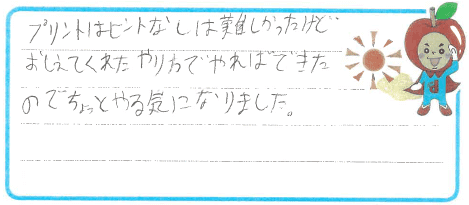 プリントはヒントなしは難しかったけど
おしえてくれたやりかたでやればできた
のでちょっとやる気になりました。